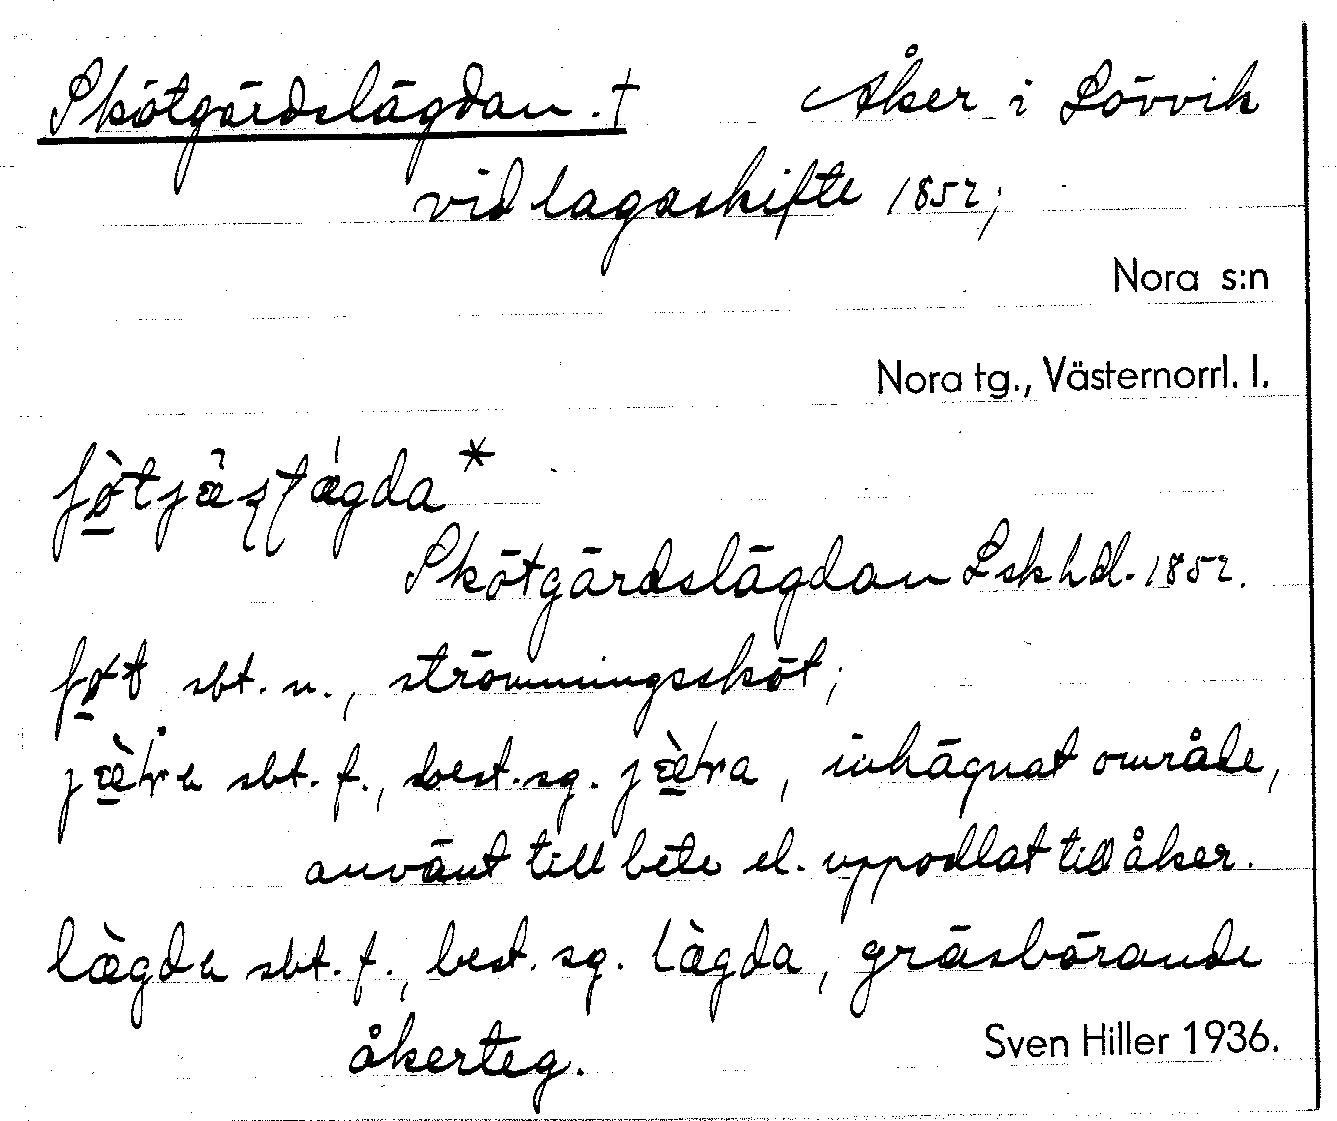 Skötgärdslägdan. † Åker i Lövvik
vid lagaskifte 1852;
Nora s:n
Nora tg., Västernorrl. l.
Skötgärdslägdan Lskhdl. 1852.
sbt. n., strömmingssköt;
sbt. f., best. sg. , inhägnat område,
använt till bete el. uppodlat till åker.
lægda sbt. f., best. sg. lægda, gräsbärande
åkerteg.
Sven Hiller 1936.